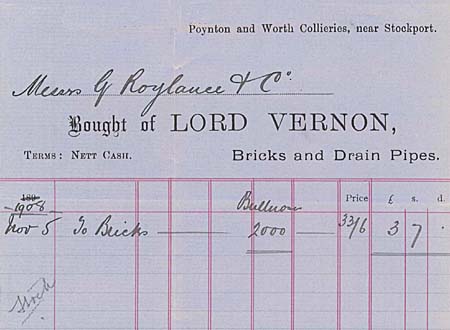 Poynton and Worth Collieries, near Stockport.
Messrs G Roylance & Co
Bought of LORD VERNON,
TERMS: NETT CASH. Bricks and Drain Pipes.
189
1908 Bullnose Price £ s. d.
Nov 5 To Bricks 2000 33/6 3 7 .
Stock